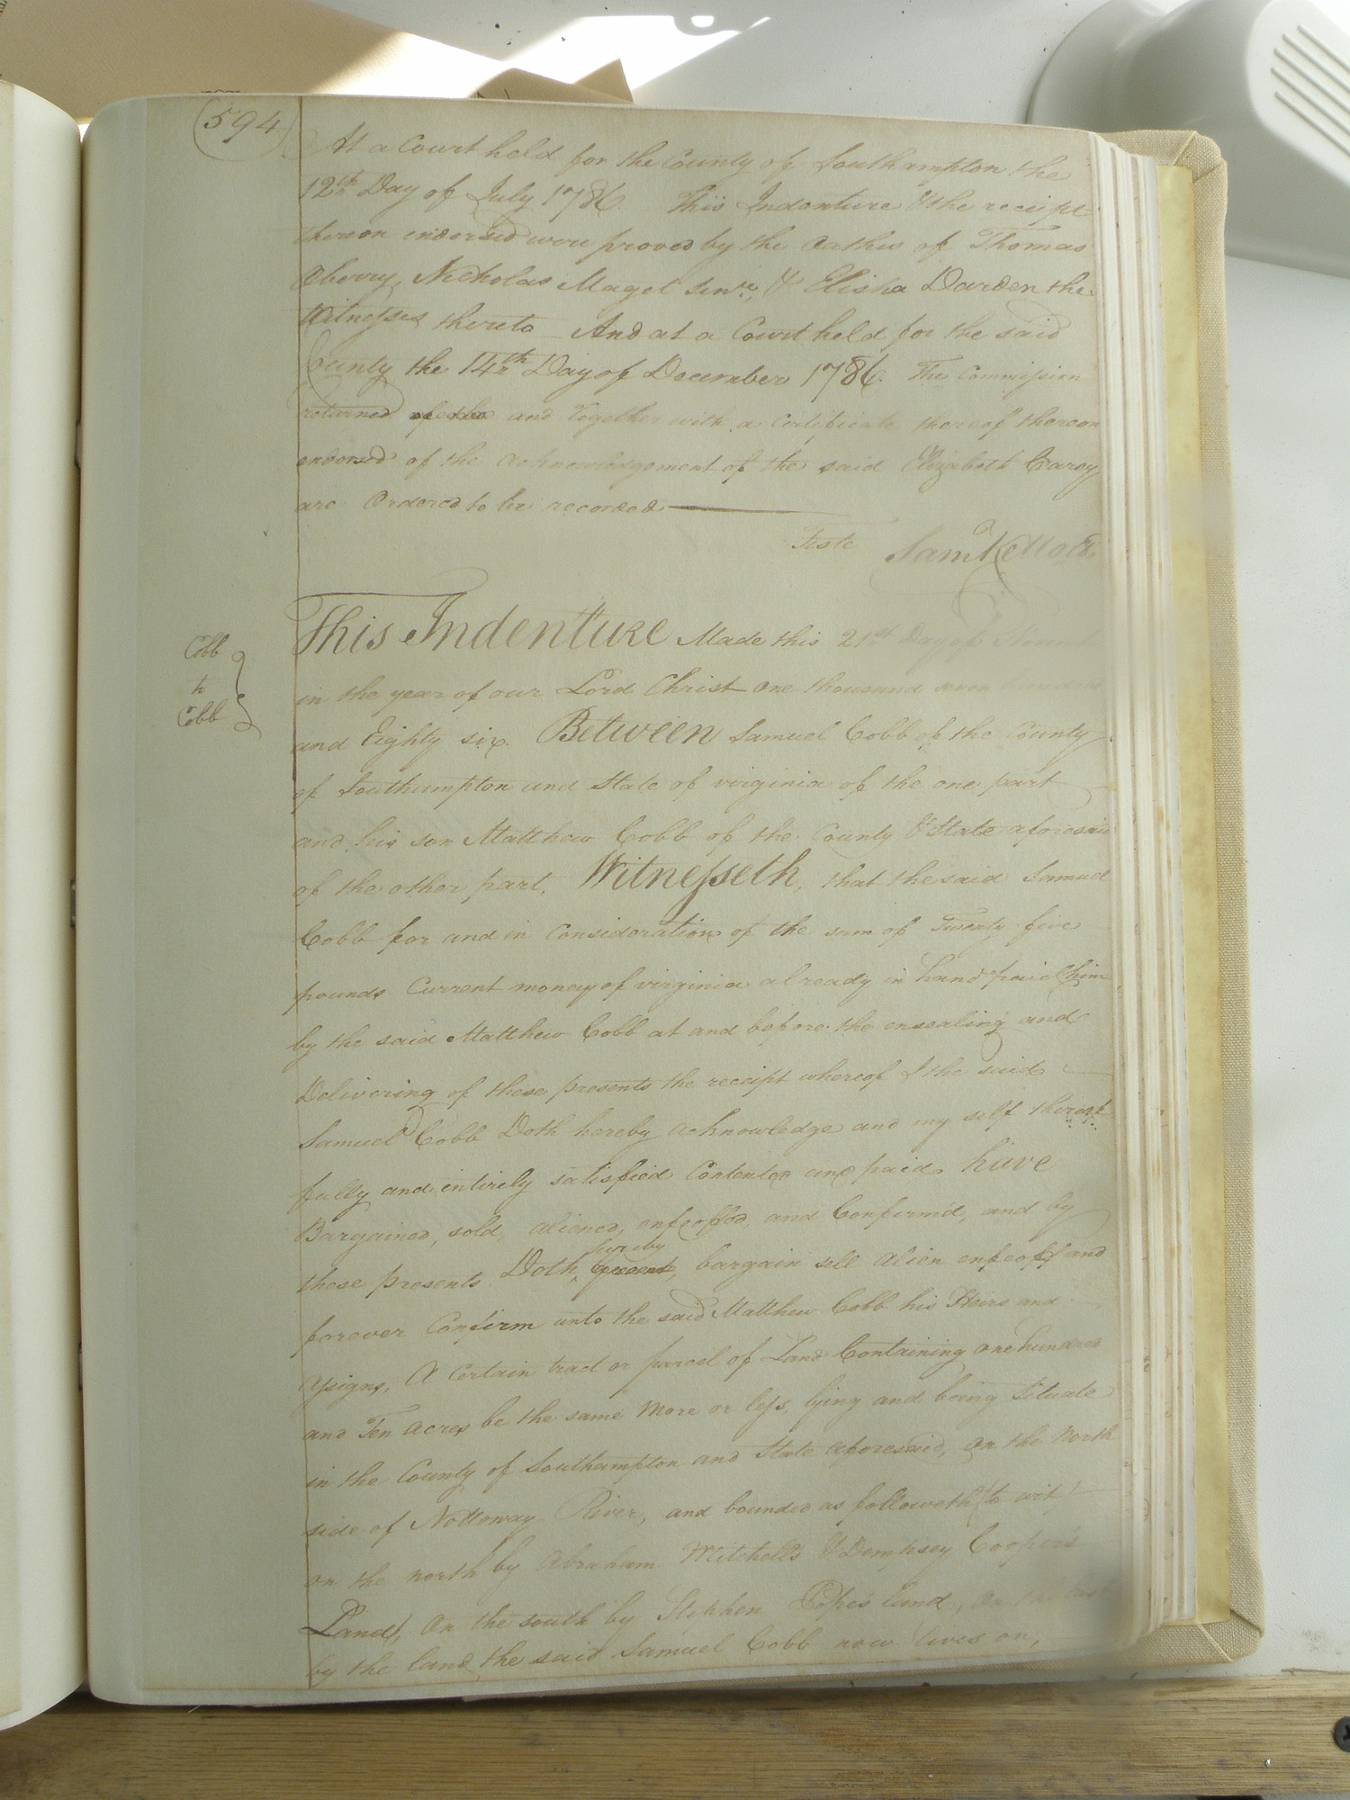 594
At a Court held for the County of Southampton the
12th Day of July 1786. This Indenture & the receipt
thereon endorsed were proved by the Oathes of Thomas
Aberry, Nicholas Maget Senr., & Elisha Darden the
Witnesses thereto And at a Court held for the said
County the 14th Day of December 1786. The Commission
returned and together with a Certificate thereof thereon
endorsed of the acknowledgement of the said Elizabeth Carey
are Ordered to be recorded
Teste Saml. Kello
Cobb
to
Cobb
This Indenture Made this 21st Day of
in the year of our Lord Christ one thousand seven hundred
and Eighty six. Between Samuel Cobb of the County
of Southampton and State of virginia of the one part
and his son Matthew Cobb of the County & State aforesaid
of the other part. Witnesseth, that the said Samuel
Cobb for and in Consideration of the sum of Twenty five
pounds Current money of virginia already in hand paid him
by the said Matthew Cobb at and before the ensealing and
Delivering of these presents the receipt whereof I the said
Samuel Cobb Doth hereby acknowledge and my self thereof
fully and intirely satisfied Contented and paid, have
Bargained, sold, aliened, enfeoffed, and Confirm'd, and by
these presents Doth, hereby bargain sell alien enfeoff and
forever Confirm unto the said Matthew Cobb his Heirs and
Assigns, A Certain tract or parcel of Land Containing one hundred
and Ten acres be the same More or less, lying and being Situate
in the County of Southampton and State aforesaid, on the North
side of Nottoway River, and bounded as followeth (to wit)
on the north by Abraham Mitchell's & Dempsey Cooper's
Land, On the south by Stephen Pope's land, on the East
by the land the said Samuel Cobb now lives on,